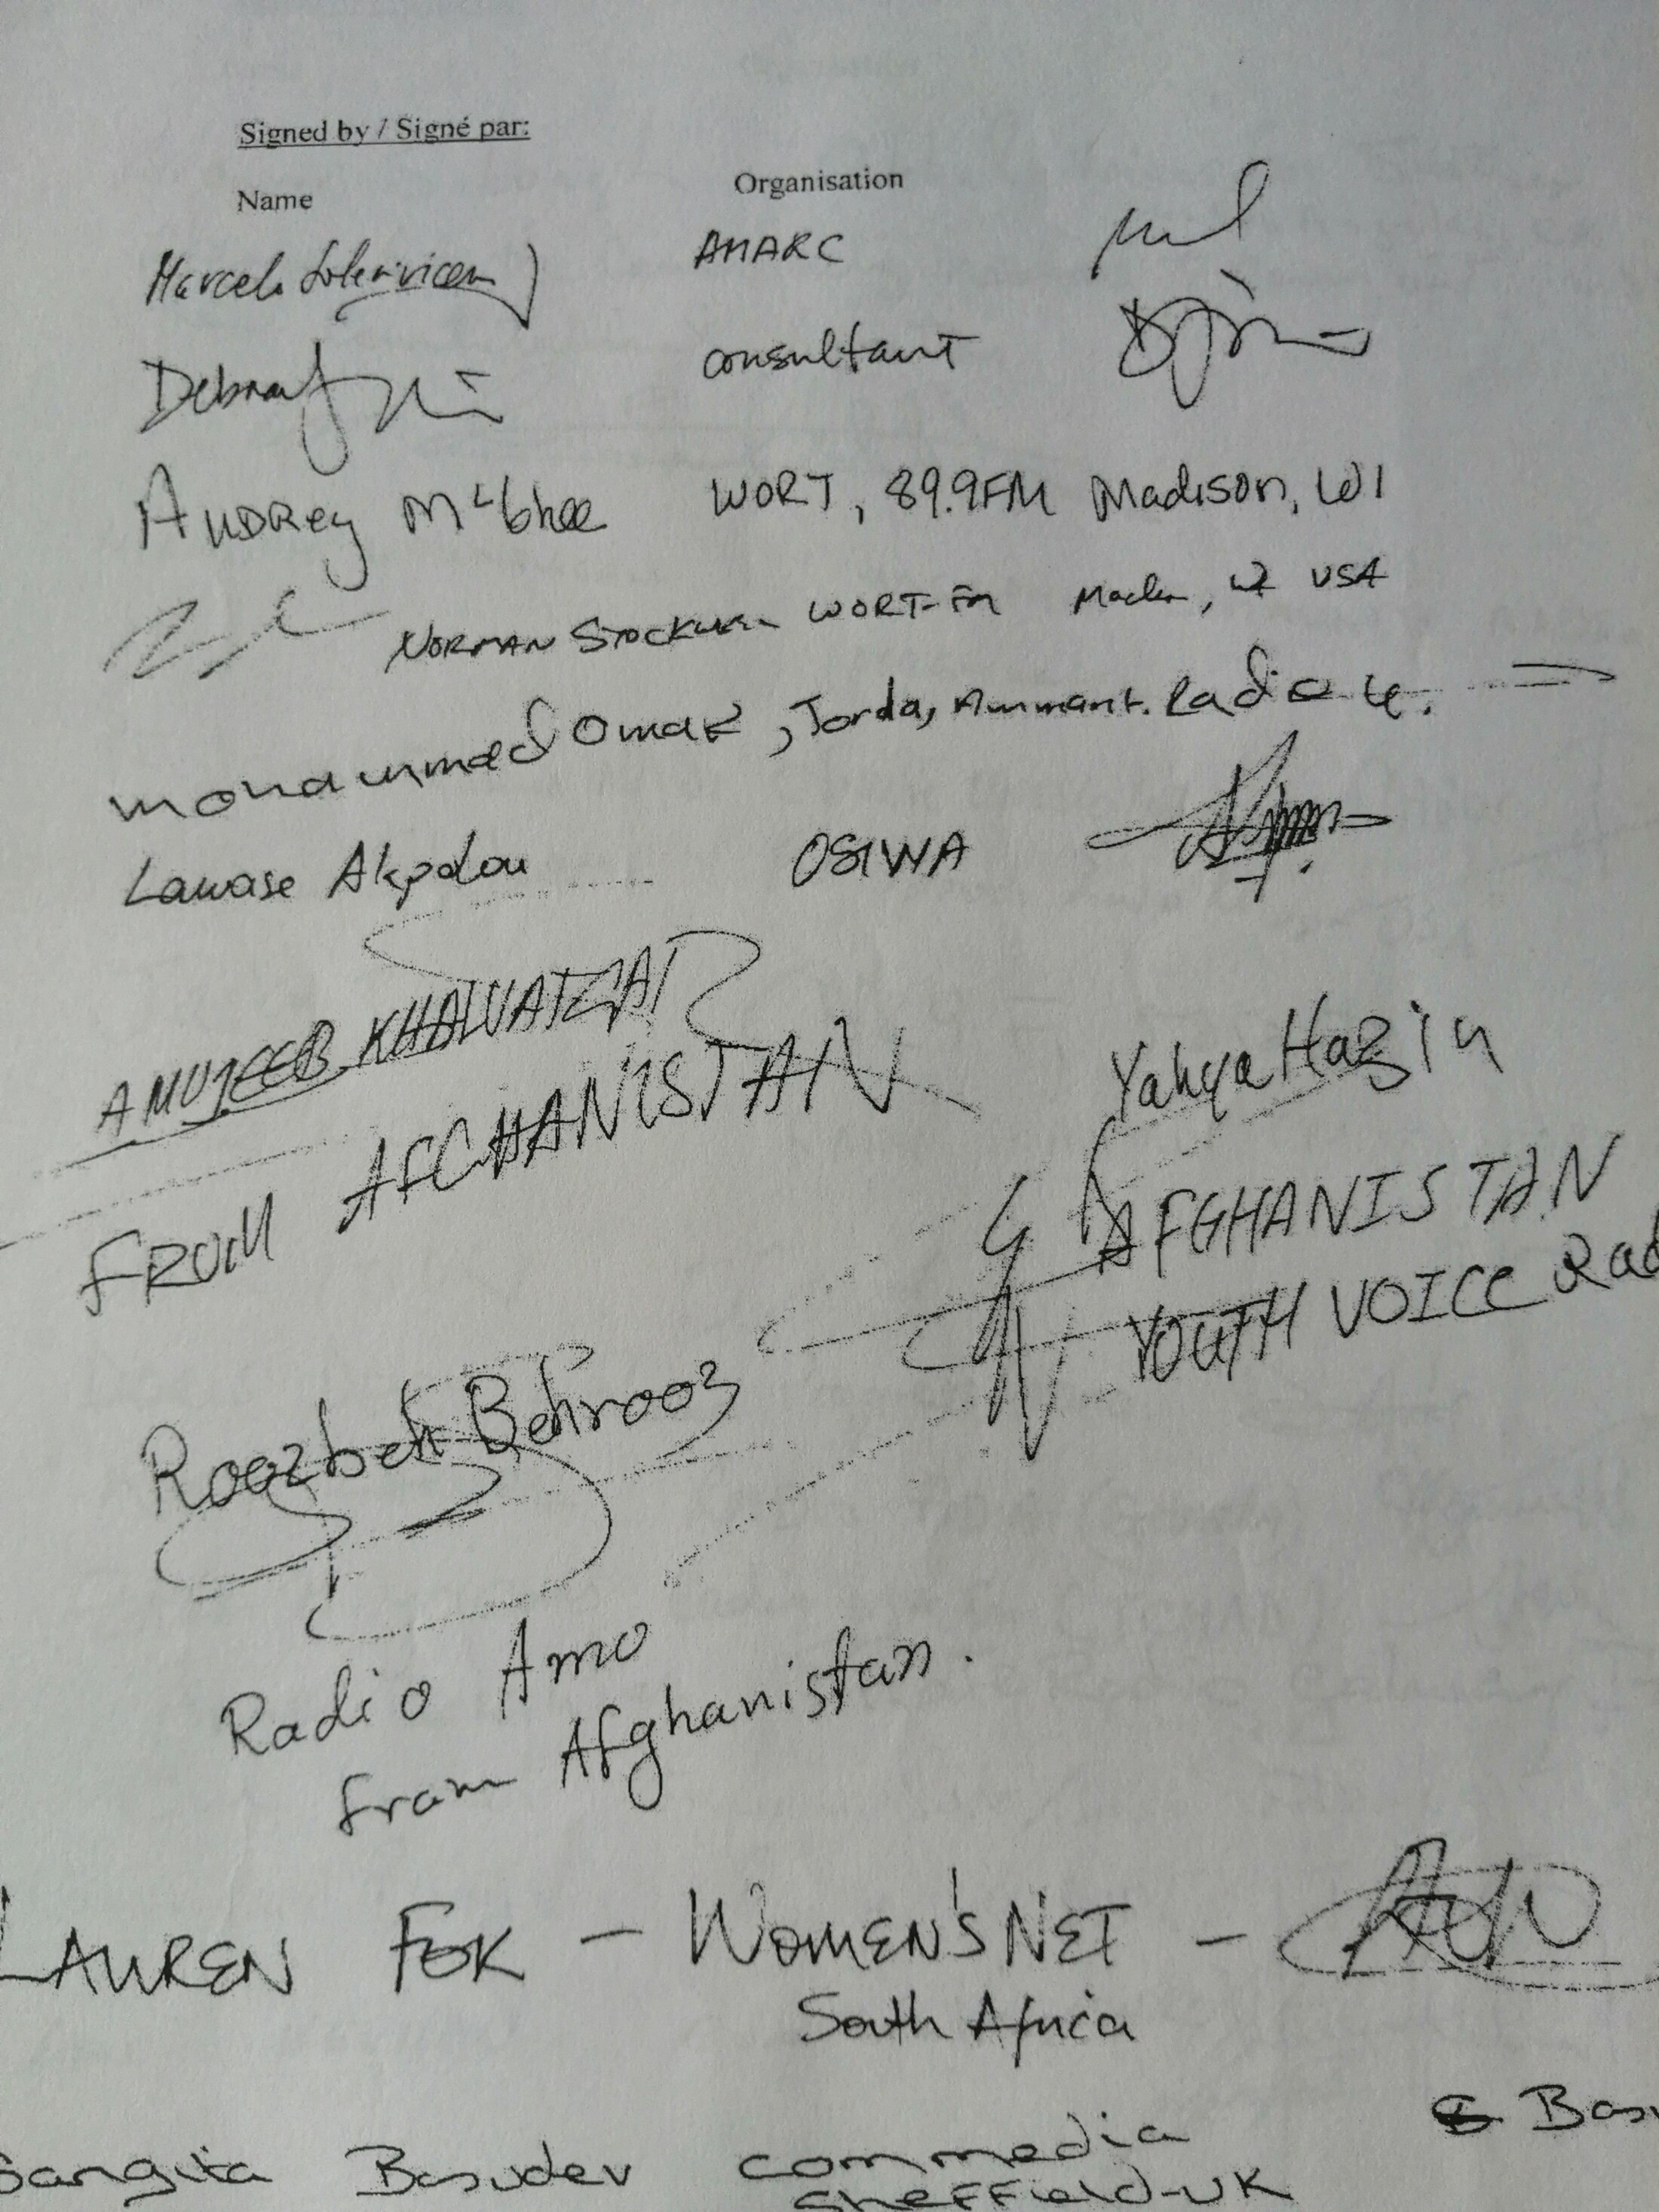 Signed by / Signé par:
Name Organisation
AMARC
consultant
AUDREY McGhee WORT, 89.9FM Madison, WI
NORMAN STOCKWELL WORT-FM WI USA
mohammed Omar, Jorda, Radio
Lawase Akpolou OSIWA
AMUJEEB KHALVATZAI
FROM AFGHANISTAN
Yahya Hazin
AFGHANISTAN
YOUTH VOICE Rad
Roozbeh Behrooz
Radio Amo
from Afghanistan.
LAUREN FOK - WOMEN'S NET -
South Africa
Sangita Basudev commedia
Sheffield-UK